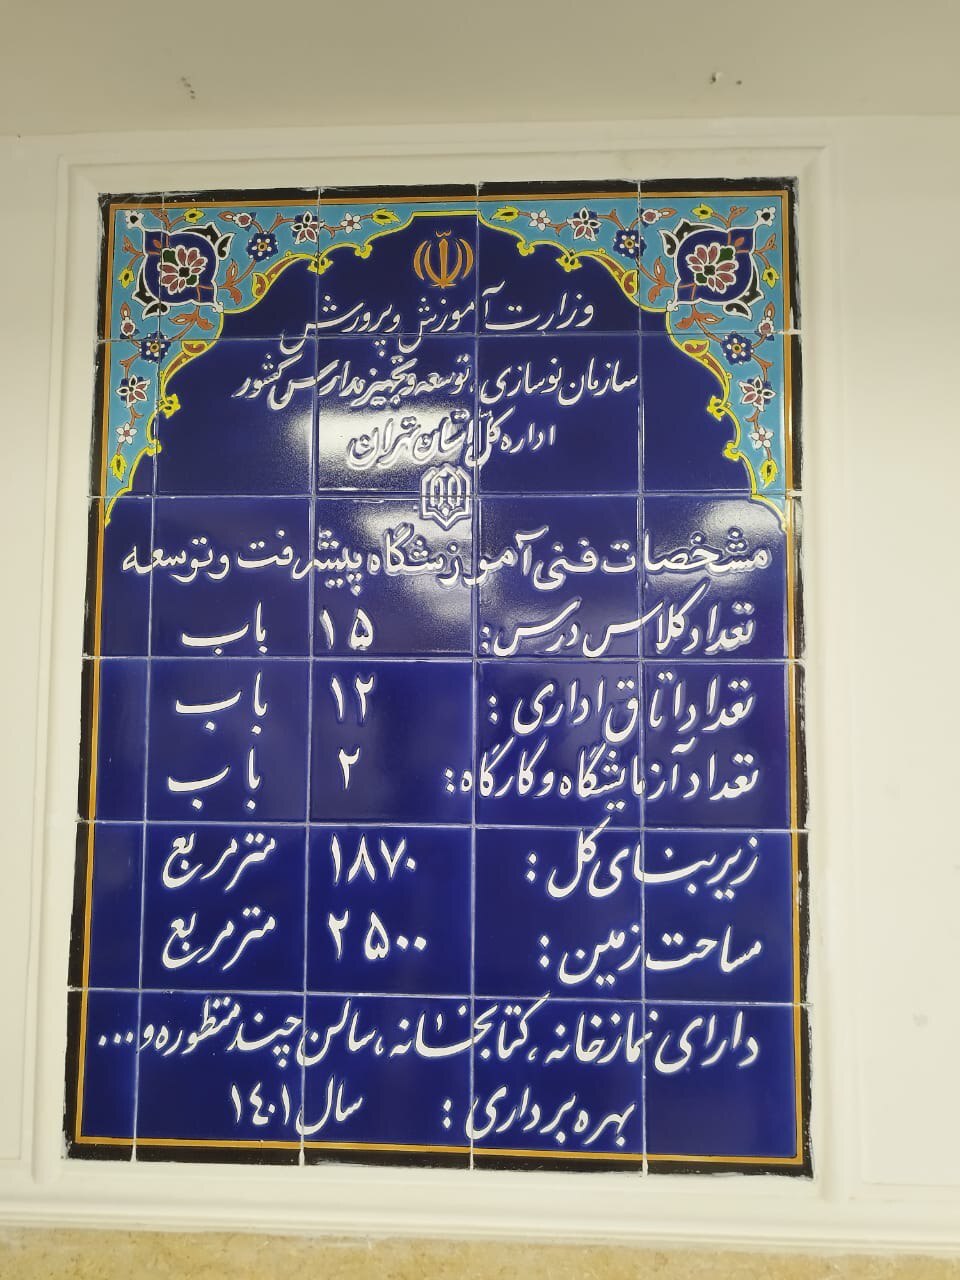 وزارت آموزش و پرورش
سازمان نوسازی، توسعه و تجهیز مدارس کشور
اداره کل استان تهران
مشخصات فنی آموزشگاه پیشرفت و توسعه
تعداد کلاس درس: ۱۵ باب
تعداد اتاق اداری: ۱۲ باب
تعداد آزمایشگاه و کارگاه: ۲ باب
زیربنای کل: ۱۸۷۰ مترمربع
مساحت زمین: ۲۵۰۰ مترمربع
دارای نمازخانه، کتابخانه، سالن چند منظوره و...
بهره برداری: سال ۱۴۰۱